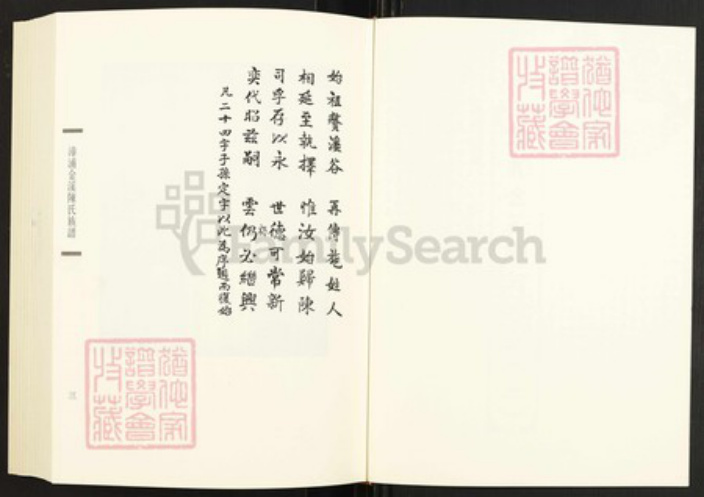 始祖贅溪谷 再傳施姓人
相延至執擇 惟汝始歸陳
司孚存以永 世德可常新
奕代昭茲嗣 雲仍必繼興
凡二十四字子孫定字以此為序週而復始
漳浦金溪陳氏族譜
猶他家
譜學會
收藏
猶他家
譜學會
收藏
FamilySearch